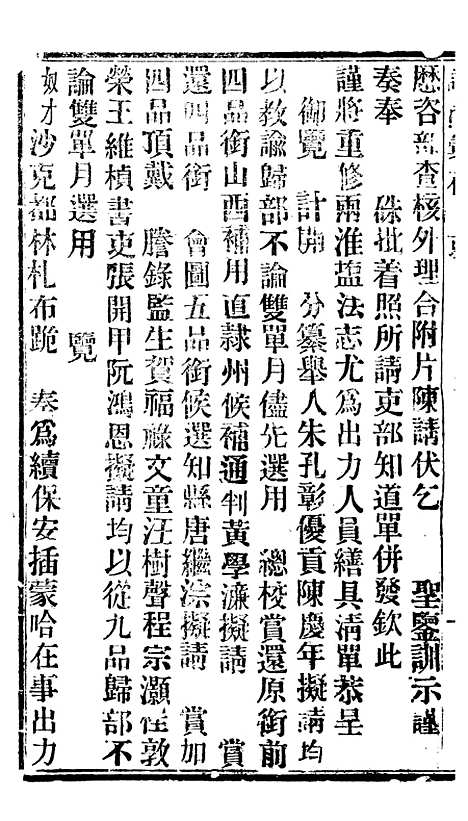 歷咨部查核外理合附片陳請伏乞　聖鑒訓示謹
奏奉　硃批着照所請吏部知道單併發欽此
謹將重修兩淮塩法志尤爲出力人員繕具清單恭呈
御覽　計開　分纂舉人朱孔彰優貢陳慶年擬請均
以教諭歸部不論雙單月儘先選用　總校賞還原銜前
四品銜山西補用直隸州候補通判黃學濂擬請　賞
還四品銜　會圖五品銜候選知縣唐繼淙擬請　賞加
四品頂戴　謄錄監生賀福祿文童汪樹聲程宗灝任敦
榮王維楨書吏張開甲阮鴻恩擬請均以從九品歸部不
論雙單月選用　覽
奴才沙克都林札布跪　奏爲續保安插蒙哈在事出力